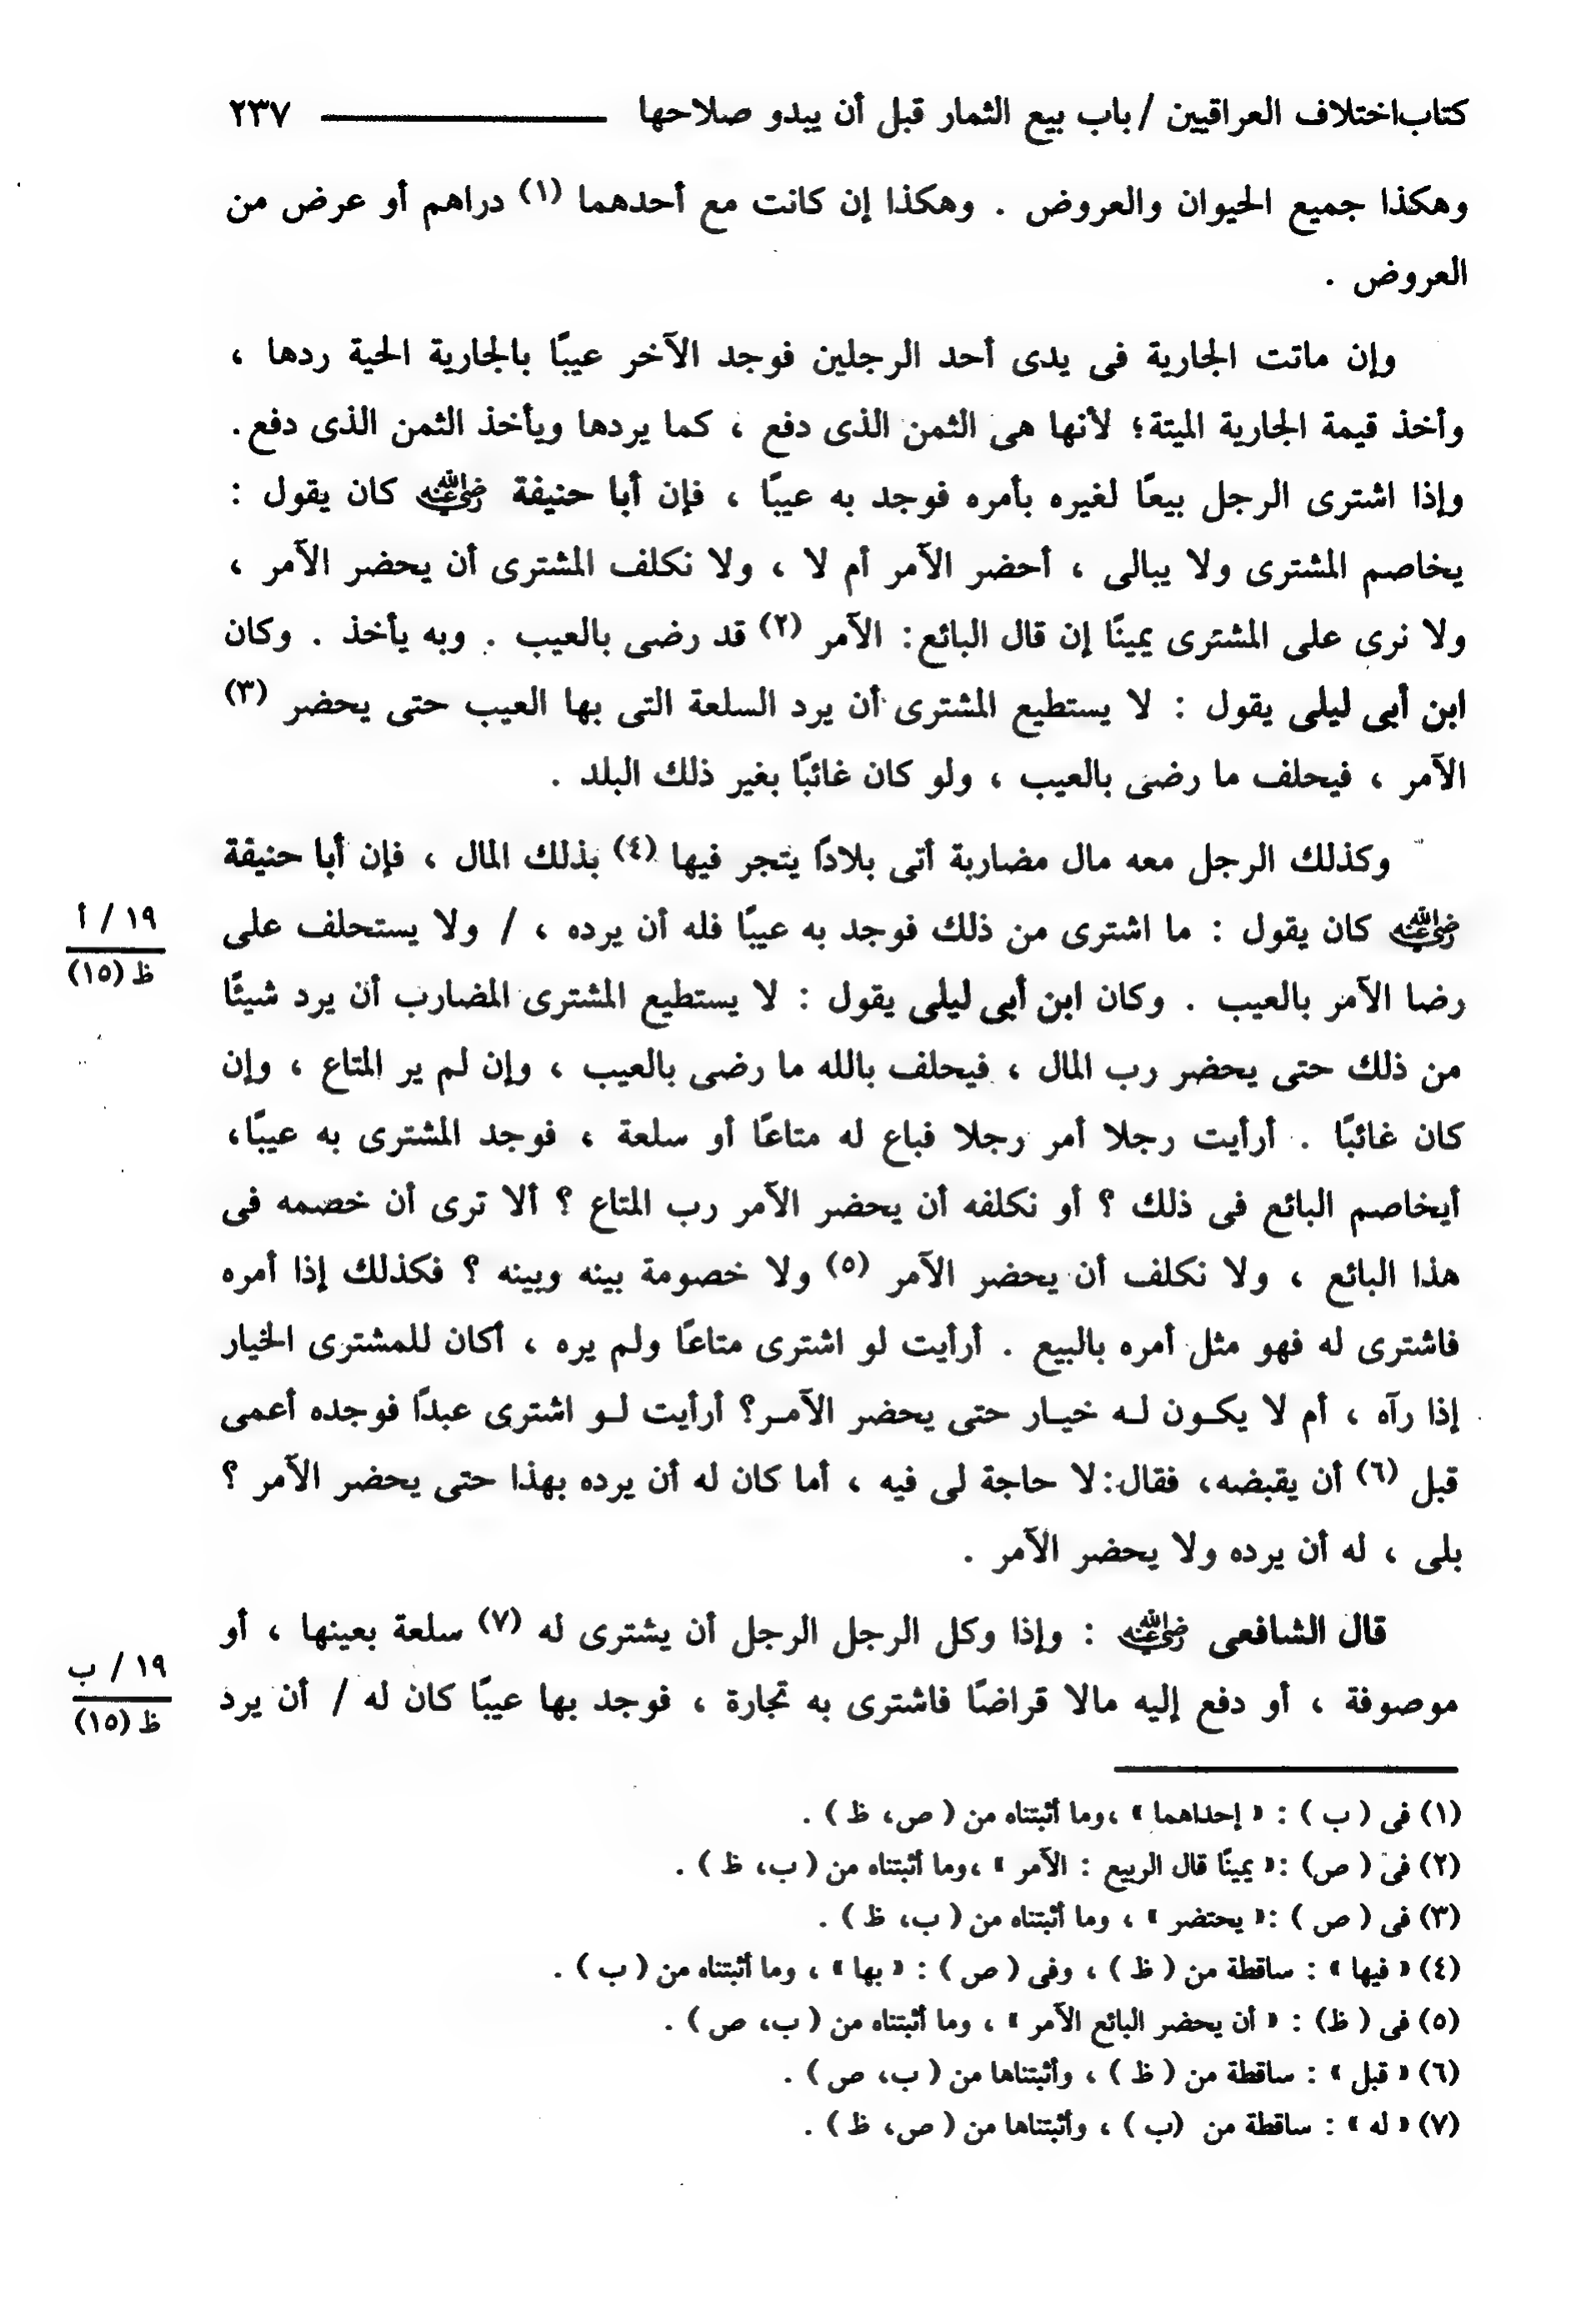 كتاب اختلاف العراقيين / باب بيع الثمار قبل أن يبدو صلاحها ٢٣٧
وهكذا جميع الحيوان والعروض . وهكذا إن كانت مع أحدهما (١) دراهم أو عرض من
العروض .
وإن ماتت الجارية فى يدى أحد الرجلين فوجد الآخر عيبًا بالجارية الحية ردها ،
وأخذ قيمة الجارية الميتة؛ لأنها هى الثمن الذى دفع ، كما يردها ويأخذ الثمن الذى دفع.
وإذا اشترى الرجل بيعًا لغيره بأمره فوجد به عيبًا ، فإن أبا حنيفة رضي الله عنه كان يقول :
يخاصم المشترى ولا يبالى ، أحضر الآمر أم لا ، ولا نكلف المشترى أن يحضر الآمر ،
ولا نرى على المشترى يمينًا إن قال البائع: الآمر (٢) قد رضى بالعيب . وبه يأخذ . وكان
ابن أبى ليلى يقول : لا يستطيع المشترى أن يرد السلعة التى بها العيب حتى يحضر (٣)
الآمر ، فيحلف ما رضى بالعيب ، ولو كان غائبًا بغير ذلك البلد .
وكذلك الرجل معه مال مضاربة أتى بلادًا يتجر فيها (٤) بذلك المال ، فإن أبا حنيفة
رضي الله عنه كان يقول : ما اشترى من ذلك فوجد به عيبًا فله أن يرده ، / ولا يستحلف على
١٩ / أ
ظ (١٥)
رضا الآمر بالعيب . وكان ابن أبى ليلى يقول : لا يستطيع المشترى المضارب أن يرد شيئًا
من ذلك حتى يحضر رب المال ، فيحلف بالله ما رضى بالعيب ، وإن لم ير المتاع ، وإن
كان غائبًا . أرأيت رجلا أمر رجلا فباع له متاعًا أو سلعة ، فوجد المشترى به عيبًا،
أيخاصم البائع فى ذلك ؟ أو نكلفه أن يحضر الآمر رب المتاع ؟ ألا ترى أن خصمه فى
هذا البائع ، ولا نكلف أن يحضر الآمر (٥) ولا خصومة بينه وبينه ؟ فكذلك إذا أمره
فاشترى له فهو مثل أمره بالبيع . أرأيت لو اشترى متاعًا ولم يره ، أكان للمشترى الخيار
إذا رآه ، أم لا يكـون لـه خيـار حتى يحضر الآمـر؟ أرأيت لـو اشترى عبدًا فوجده أعمى
قبل (٦) أن يقبضه، فقال: لا حاجة لى فيه ، أما كان له أن يرده بهذا حتى يحضر الآمر ؟
بلى ، له أن يرده ولا يحضر الآمر .
قال الشافعى رضي الله عنه : وإذا وكل الرجل الرجل أن يشترى له (٧) سلعة بعينها ، أو
موصوفة ، أو دفع إليه مالا قراضًا فاشترى به تجارة ، فوجد بها عيبًا كان له / أن يرد
١٩ / ب
ظ (١٥)
(١) فى ( ب ) : « إحداهما » ،وما أثبتناه من ( ص، ظ ) .
(٢) فى ( ص) :« يمينًا قال الربيع : الآمر » ،وما أثبتناه من ( ب، ظ ) .
(٣) فى ( ص ) :« يحتضر » ، وما أثبتناه من ( ب، ظ ) .
(٤) « فيها » : ساقطة من ( ظ ) ، وفى ( ص ) : « بها » ، وما أثبتناه من ( ب ) .
(٥) فى ( ظ) : « أن يحضر البائع الآمر » ، وما أثبتناه من ( ب، ص ) .
(٦) « قبل » : ساقطة من ( ظ ) ، وأثبتناها من ( ب، ص ) .
(٧) « له » : ساقطة من (ب ) ، وأثبتناها من ( ص، ظ ) .